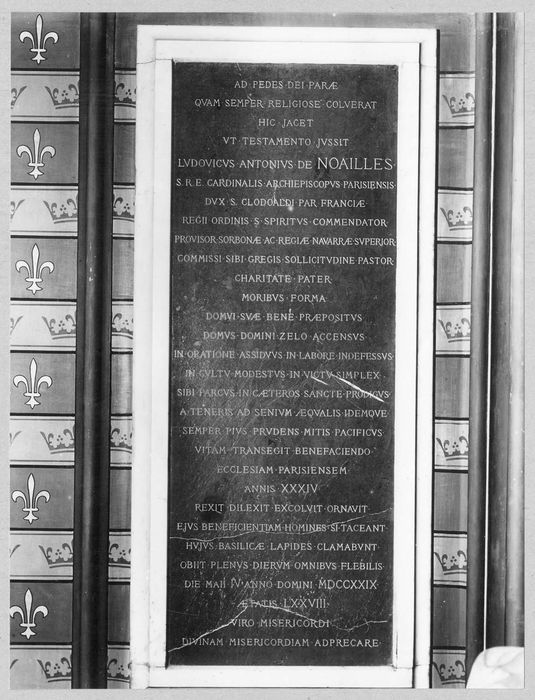 AD·PEDES·DEI·PARÆ
QVAM·SEMPER·RELIGIOSE·COLVERAT
HIC·JACET
VT·TESTAMENTO·JVSSIT
LVDOVICVS·ANTONIVS·DE·NOAILLES·
S·R·E·CARDINALIS·ARCHIEPISCOPVS·PARISIENSIS
DVX·S·CLODOALDI·PAR·FRANCIÆ
REGII·ORDINIS·S·SPIRITVS·COMMENDATOR
PROVISOR·SORBONÆ·AC·REGIÆ·NAVARRÆ·SVPERIOR
COMMISSI·SIBI·GREGIS·SOLLICITVDINE·PASTOR
CHARITATE·PATER
MORIBVS·FORMA
DOMVI·SVÆ·BENE·PRÆPOSITVS
DOMVS·DOMINI·ZELO·ACCENSVS
IN·ORATIONE·ASSIDVVS·IN·LABORE·INDEFESSVS
IN·CVLTV·MODESTVS·IN·VICTV·SIMPLEX
SIBI·PARCVS·IN·CÆTEROS·SANCTE·PRODIGVS
A·TENERIS·AD·SENIVM·ÆQVALIS·IDEMQVE
SEMPER·PIVS·PRVDENS·MITIS·PACIFICVS
VITAM·TRANSEGIT·BENEFACIENDO
ECCLESIAM·PARISIENSEM
ANNIS·XXXIV
REXIT·DILEXIT·EXCOLVIT·ORNAVIT
EJVS·BENEFICIENTIAM·HOMINES·SI·TACEANT
HVJVS·BASILICÆ·LAPIDES·CLAMABVNT
OBIIT·PLENVS·DIERVM·OMNIBVS·FLEBILIS
DIE·MAII·IV·ANNO·DOMINI·MDCCXXIX
ÆTATIS·LXXVIII
VIRO·MISERICORDI
DIVINAM·MISERICORDIAM·ADPRECARE·